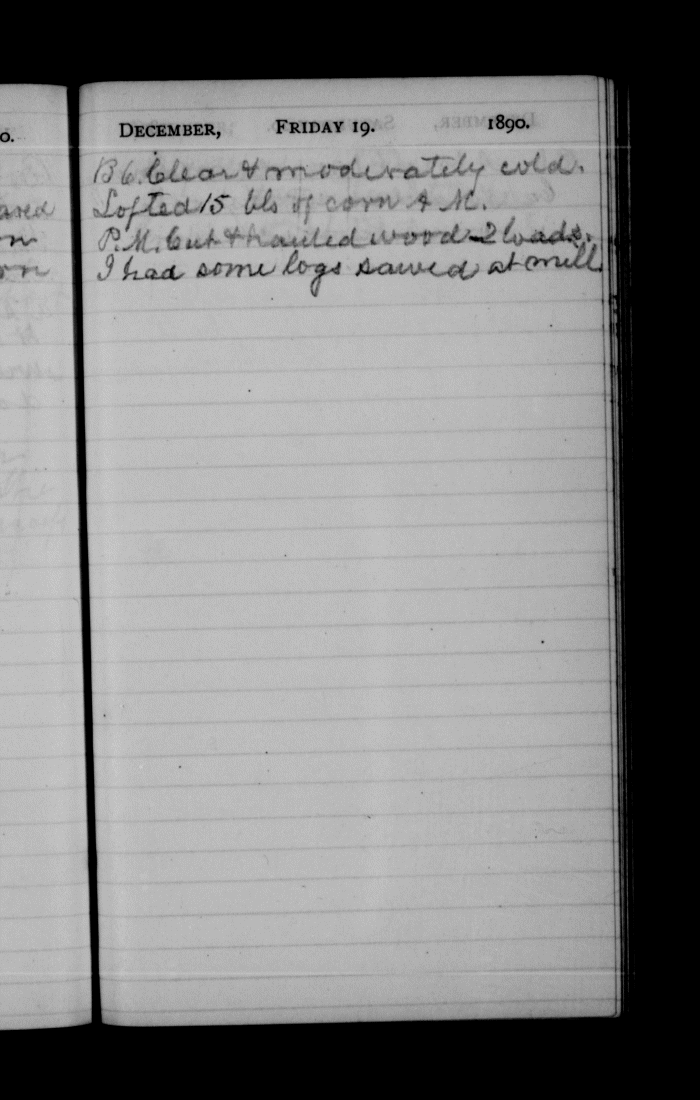 DECEMBER, FRIDAY 19. 1890.
B6. Clear & moderately cold.
Lofted 15 bls of corn A.M.
P.M. Cut & hauled wood - 2 loads.
I had some logs sawed at mill.